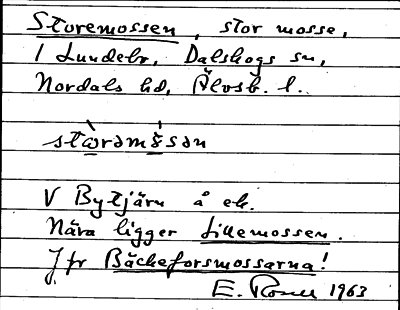 Storemossen, stor mosse,
I Lundebr, Dalskogs sn,
Nordals hd, Älvsb. l.
V Bytjärn å ek.
Nära ligger Lillemossen.
Jfr Bäckeforsmossarna!
E. Rosell 1963